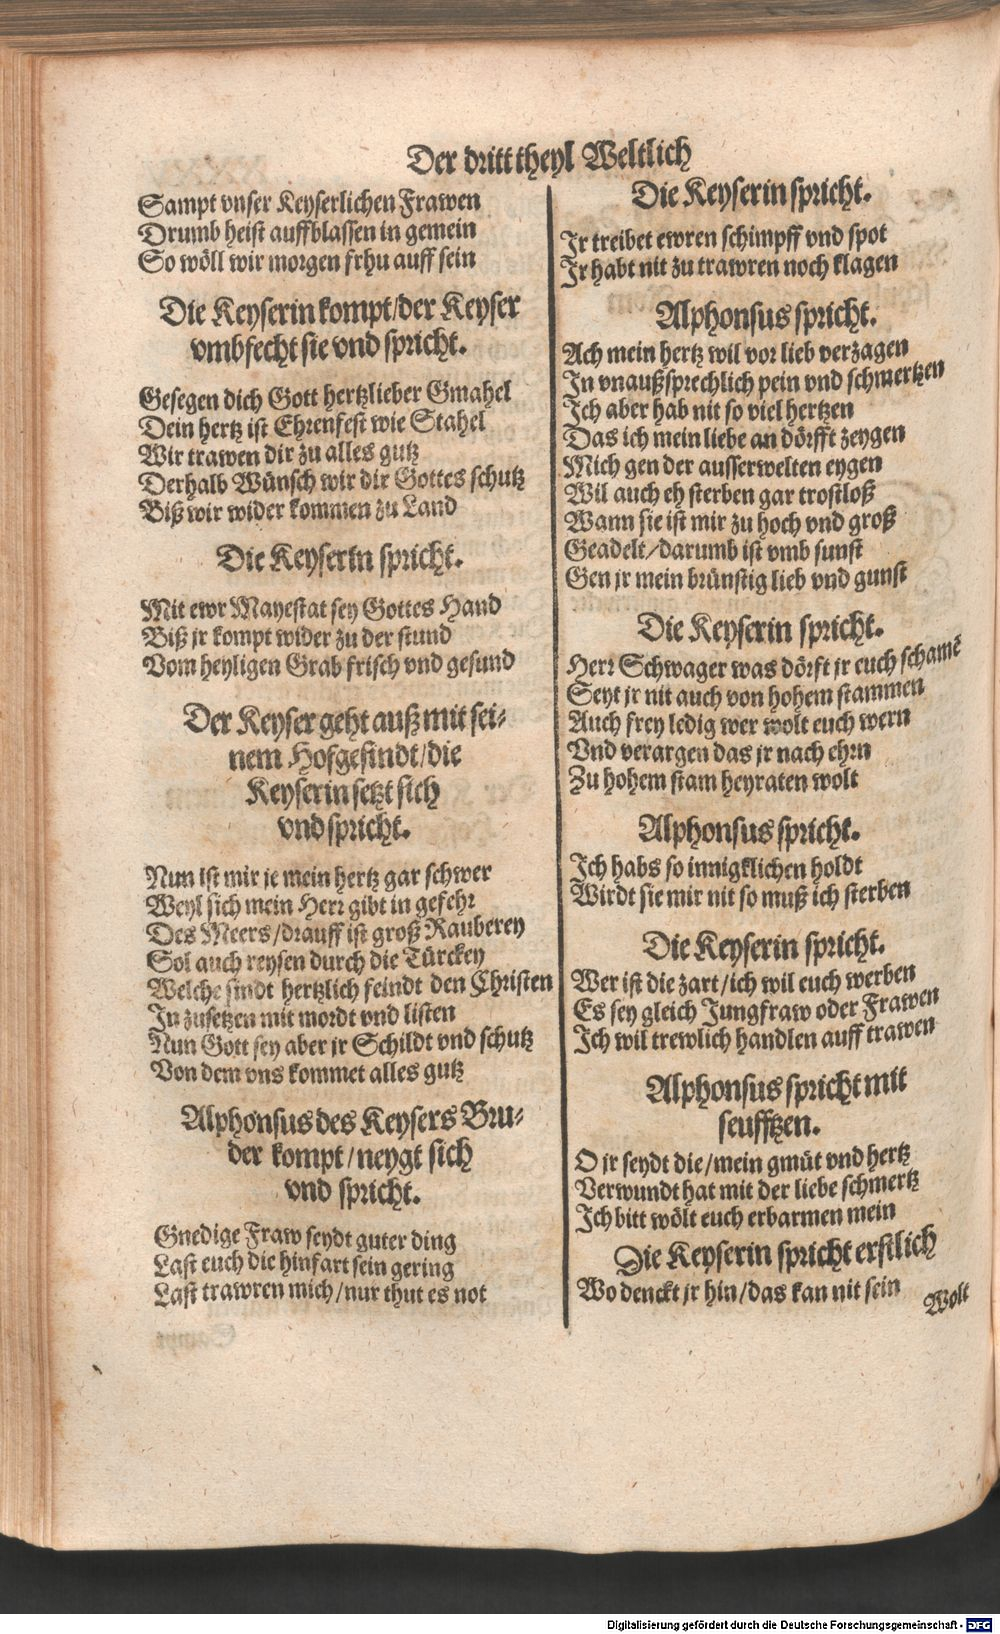 Der dritt theyl Weltlich
Sampt vnser Keyserlichen Frawen
Drumb heist auffblassen in gemein
So wöll wir morgen frhu auff sein
Die Keyserin kompt/der Keyser
vmbfecht sie vnd spricht.
Gesegen dich Gott hertzlieber Gmahel
Dein hertz ist Ehrenfest wie Stahel
Wir trawen dir zu alles gutz
Derhalb Wünsch wir dir Gottes schutz
Biß wir wider kommen zu Land
Die Keyserin spricht.
Mit ewr Mayestat sey Gottes Hand
Biß jr kompt wider zu der stund
Vom heyligen Grab frisch vnd gesund
Der Keyser geht auß mit sei-
nem Hofgesindt/die
Keyserin setzt sich
vnd spricht.
Nun ist mir je mein hertz gar schwer
Weyl sich mein Herr gibt in gefehr
Des Meers/drauff ist groß Rauberey
Sol auch reysen durch die Türckey
Welche sindt hertzlich feindt den Christen
In zusetzen mit mordt vnd listen
Nun Gott sey aber jr Schildt vnd schutz
Von dem vns kommet alles gutz
Alphonsus des Keysers Bru-
der kompt/neygt sich
vnd spricht.
Gnedige Fraw seydt guter ding
Last euch die hinfart sein gering
Last trawren mich/nur thut es not
Die Keyserin spricht.
Jr treibet ewren schimpff vnd spot
Jr habt nit zu trawren noch klagen
Alphonsus spricht.
Ach mein hertz wil vor lieb verzagen
In vnaußsprechlich pein vnd schmertzen
Ich aber hab nit so viel hertzen
Das ich mein liebe an dörfft zeygen
Mich gen der ausserwelten eygen
Wil auch eh sterben gar trostloß
Wann sie ist mir zu hoch vnd groß
Geadelt/darumb ist vmb sunst
Gen jr mein brünstig lieb vnd gunst
Die Keyserin spricht.
Herr Schwager was dörft jr euch schamē
Seyt jr nit auch von hohem stammen
Auch frey ledig wer wolt euch wern
Vnd verargen das jr nach ehrn
Zu hohem stam heyraten wolt
Alphonsus spricht.
Ich habs so innigklichen holdt
Wirdt sie mir nit so muß ich sterben
Die Keyserin spricht.
Wer ist die zart/ich wil euch werben
Es sey gleich Jungfraw oder Frawen
Ich wil trewlich handlen auff trawen
Alphonsus spricht mit
seufftzen.
O jr seydt die/mein gmüt vnd hertz
Verwundt hat mit der liebe schmertz
Ich bitt wölt euch erbarmen mein
Die Keyserin spricht erstlich
Wo denckt jr hin/das kan nit sein
Wolt
Digitalisierung gefördert durch die Deutsche Forschungsgemeinschaft - DFG